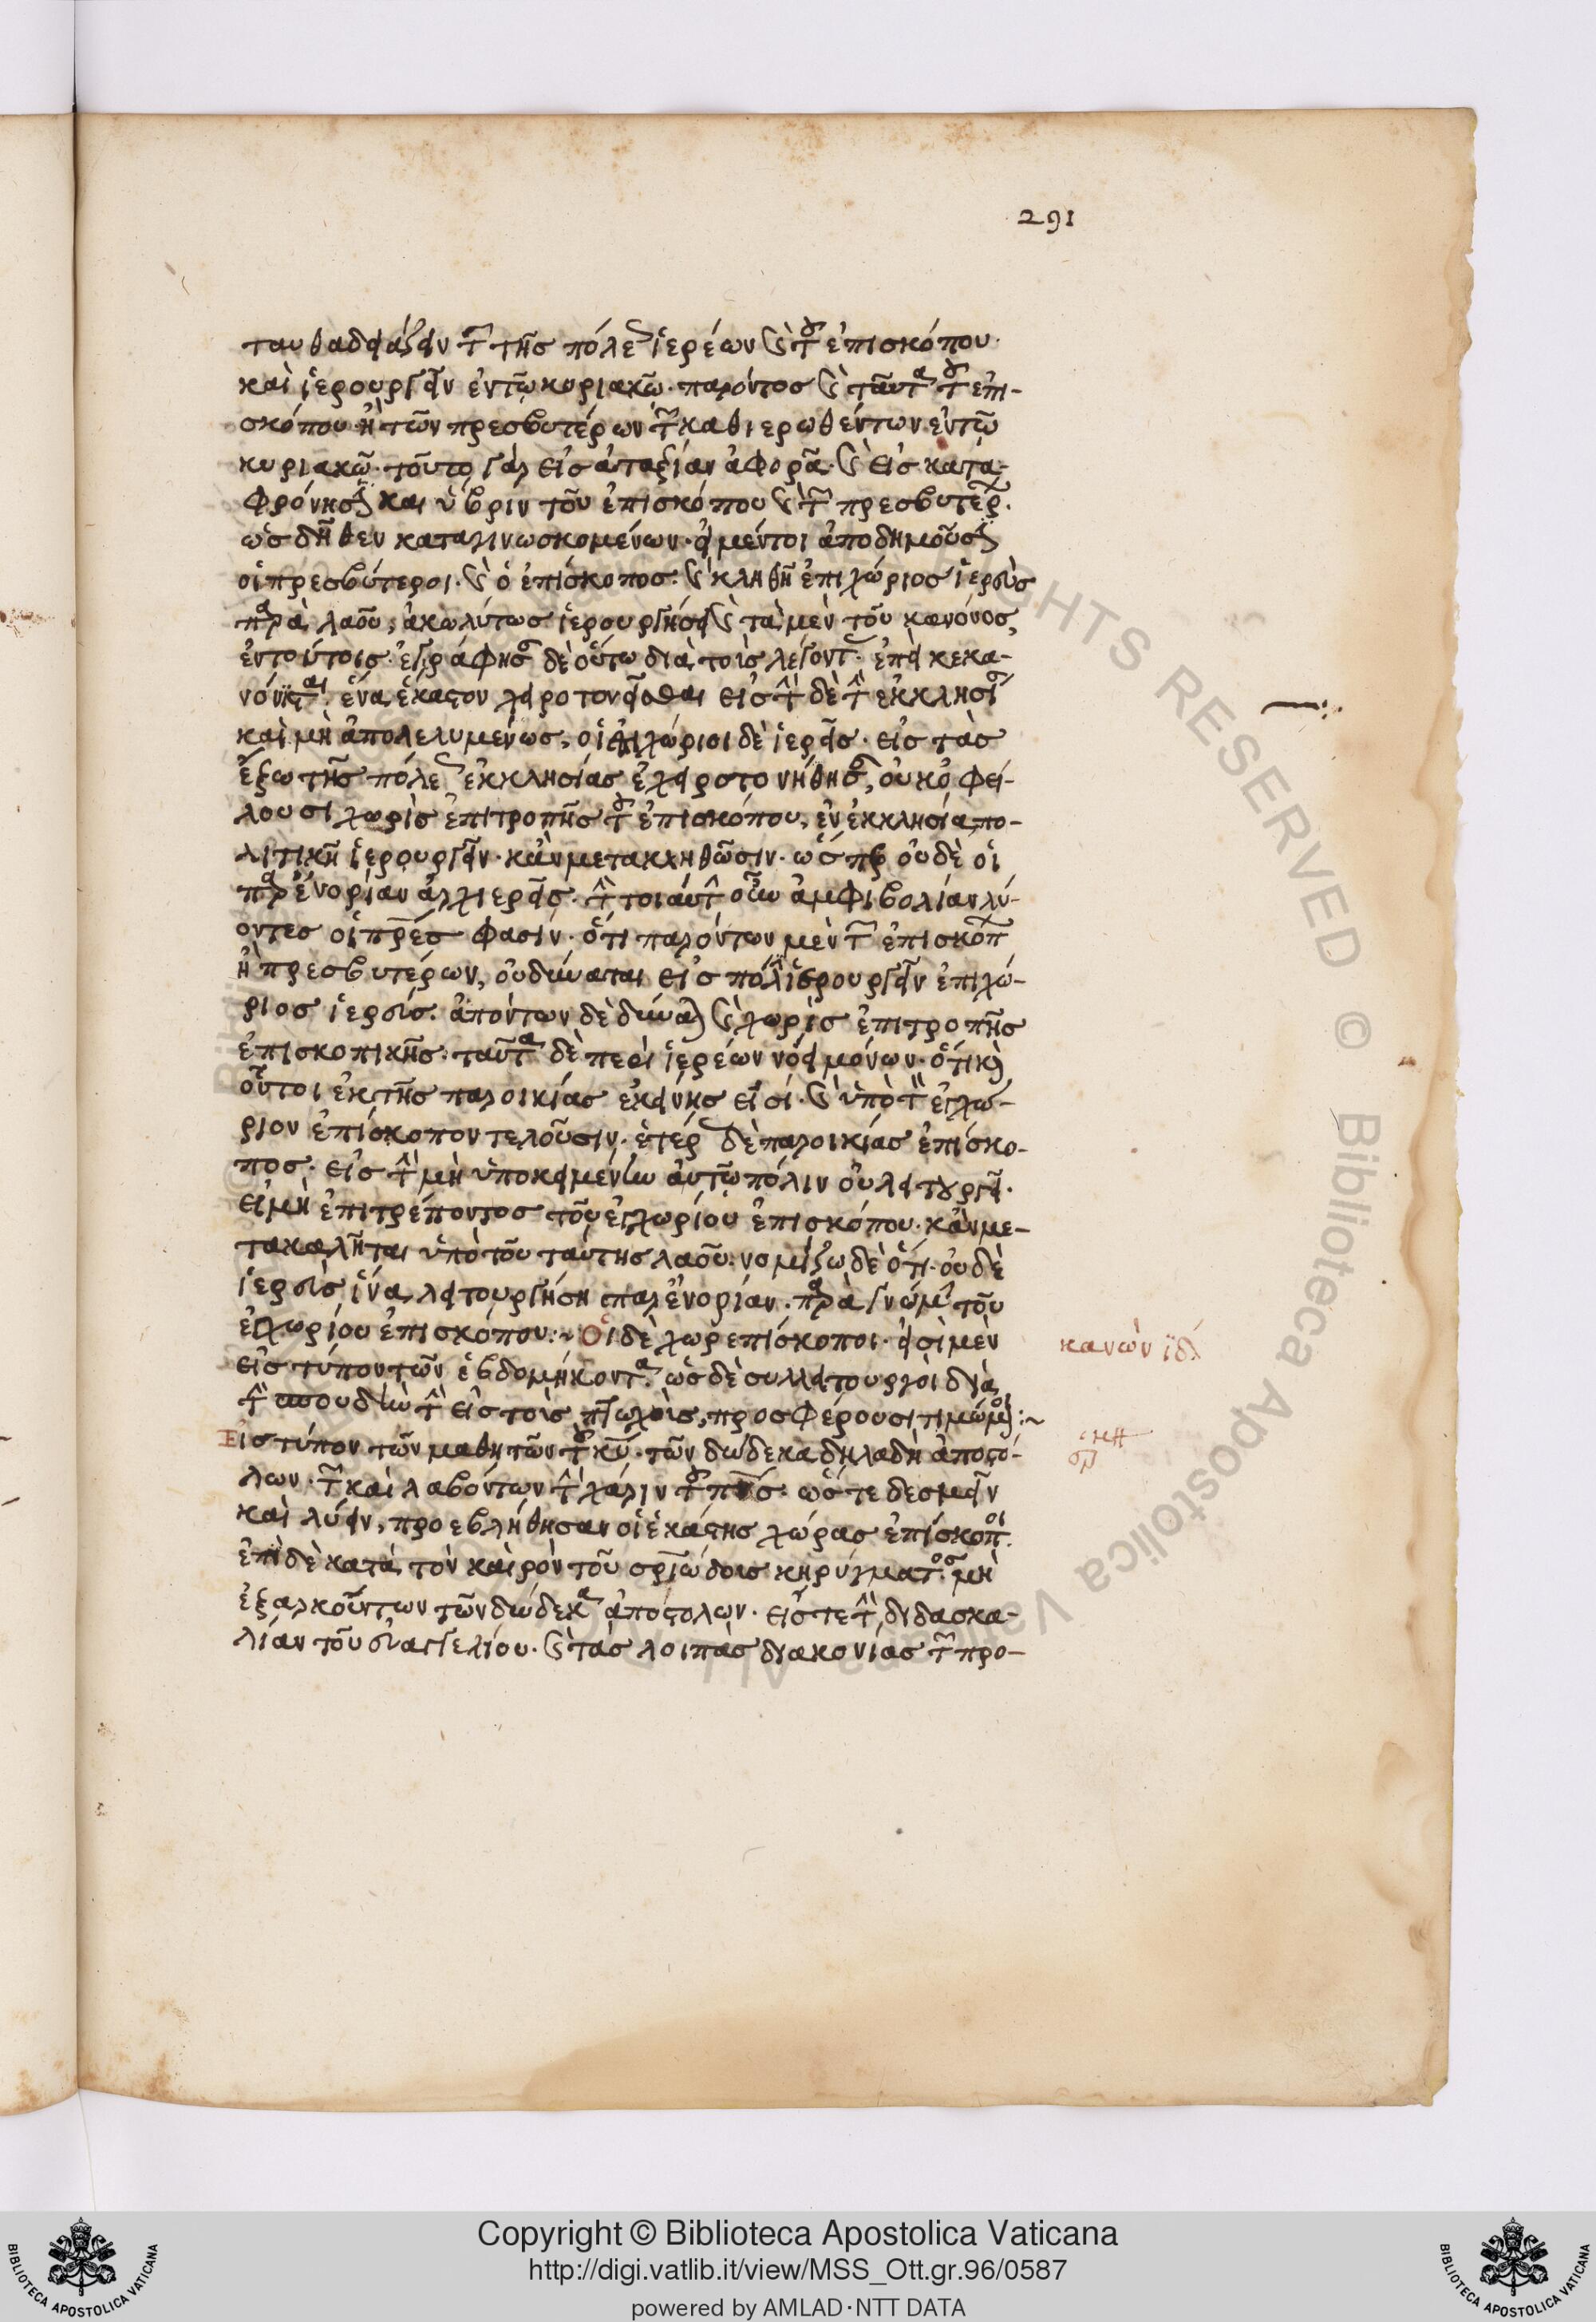 291
ταυθαδειάζειν τῶν τῆς πόλεως ἱερέων καὶ τοῦ ἐπισκόπου.
καὶ ἱερουργεῖν ἐν τῶ κυριακῶ. παρόντος καὶ ταῦτα τοῦ ἐπι-
σκόπου ἢ τῶν πρεσβυτέρων τῶν καθιερωθέντων ἐν τῶ
κυριακῶ. τοῦτο γὰρ εἰς ἀταξίαν ἀφορᾶ. καὶ εἰς κατα-
φρόνησιν και ὕβριν τοῦ ἐπισκόπου καὶ τῶν πρεσβυτέρων.
ὡς δῆθεν καταγινωσκομένων. εἰ μέντοι ἀποδημοῦσιν
οἱ πρεσβύτεροι. καὶ ὁ ἐπίσκοπος. καὶ κληθῆ ἐπιχώριος ἱερεὺς
παρὰ λαοῦ, ἀκωλύτως ἱερουργήσει καὶ τὰ μὲν τοῦ κανόνος,
ἐν τούτοις. ἐγράφησαν δὲ οὕτω διὰ τοὺς λέγοντας. ἐπεὶ κεκα-
νόνισται ἕνα ἕκαστον χειροτονεῖσθαι εἰς τὴν δὲ τὴν ἐκκλησίαν
καὶ μὴ ἀπολελυμένως, οἱ ἐπιχώριοι δὲ ἱερεῖς. εἰς τὰς
ἔξω τῆς πόλεως ἐκκλησίας ἐχειροτονήθησαν, οὐκ ὀφεί-
λουσι χωρὶς ἐπιτροπῆς τοῦ ἐπισκόπου, ἐν ἐκκλησία πο-
λιτικῆ ἱερουργεῖν. κἂν μετακληθῶσιν. ὥσπερ οὐδὲ οἱ
παρ' ἐνορίαν ἀρχιερεῖς. τὴν τοιαύτην οὖν ἀμφιβολίαν λύ-
οντες οἱ πρες φασίν. ὅτι παρόντων μὲν τῶν ἐπισκόπων
ἢ πρεσβυτέρων, οὐ δύναται εἰς πόλιν ἱερουργεῖν ἐπιχώ-
ριος ἱερεύς. ἀπόντων δὲ δύναται καὶ χωρὶς ἐπιτροπῆς
ἐπισκοπικῆς. ταῦτα δὲ περὶ ἱερέων νόει μόνων. ὅτι καὶ
οὗτοι ἐκ τῆς παροικίας ἐκείνης εἰσί. καὶ ὑπὸ τὸν ἐγχώ-
ριον ἐπίσκοπον τελοῦσιν. ἑτέρας δὲ παροικίας ἐπίσκο-
πος. εἰς τὴν μὴ ὑποκειμένην αὐτῶ πόλιν οὐ λειτουργεῖ.
εἰ μὴ ἐπιτρέποντος τοῦ ἐγχωρίου ἐπισκόπου. κἂν με-
τακαλῆται ὑπὸ τοῦ ταύτης λαοῦ. νομίζω δὲ ὅτι. οὐδὲ
ἱερεὺς ἵνα λειτουργήση παρ' ἐνορίαν. παρὰ γνώμην τοῦ
ἐγχωρίου ἐπισκόπου:~ Οἱ δὲ χωρεπίσκοποι. εἰσὶ μὲν
κανὼν ιδ
εἰς τύπον τῶν ἑβδομήκοντα. ὡς δὲ συλλειτουργοὶ διὰ
τὴν σπουδὴν τὴν εἰς τοὺς πτωχοὺς, προσφέρουσι τιμώμενοι:~
Εἰς τύπον τῶν μαθητῶν τοῦ κυ. τῶν δώδεκα δηλαδὴ ἀποστό-
λων. τῶν καὶ λαβόντων τὴν χάριν τοῦ πνς. ὥστε δεσμεῖν
καὶ λύειν, προεβλήθησαν οἱ ἑκάστης χώρας ἐπίσκοποι.
ἐπεὶ δὲ κατὰ τὸν καιρὸν τοῦ σριώδους κηρύγματος. μὴ
ἐξαρκούντων τῶν δώδεκα ἀποστόλων. εἰς τε τὴν διδασκα-
λίαν τοῦ εὐαγγελίου. καὶ τὰς λοιπὰς διακονίας τῶν προ-
Copyright © Biblioteca Apostolica Vaticana
http://digi.vatlib.it/view/MSS_Ott.gr.96/0587
powered by AMLAD·NTT DATA
BIBLIOTECA APOSTOLICA VATICANA
BIBLIOTECA APOSTOLICA VATICANA